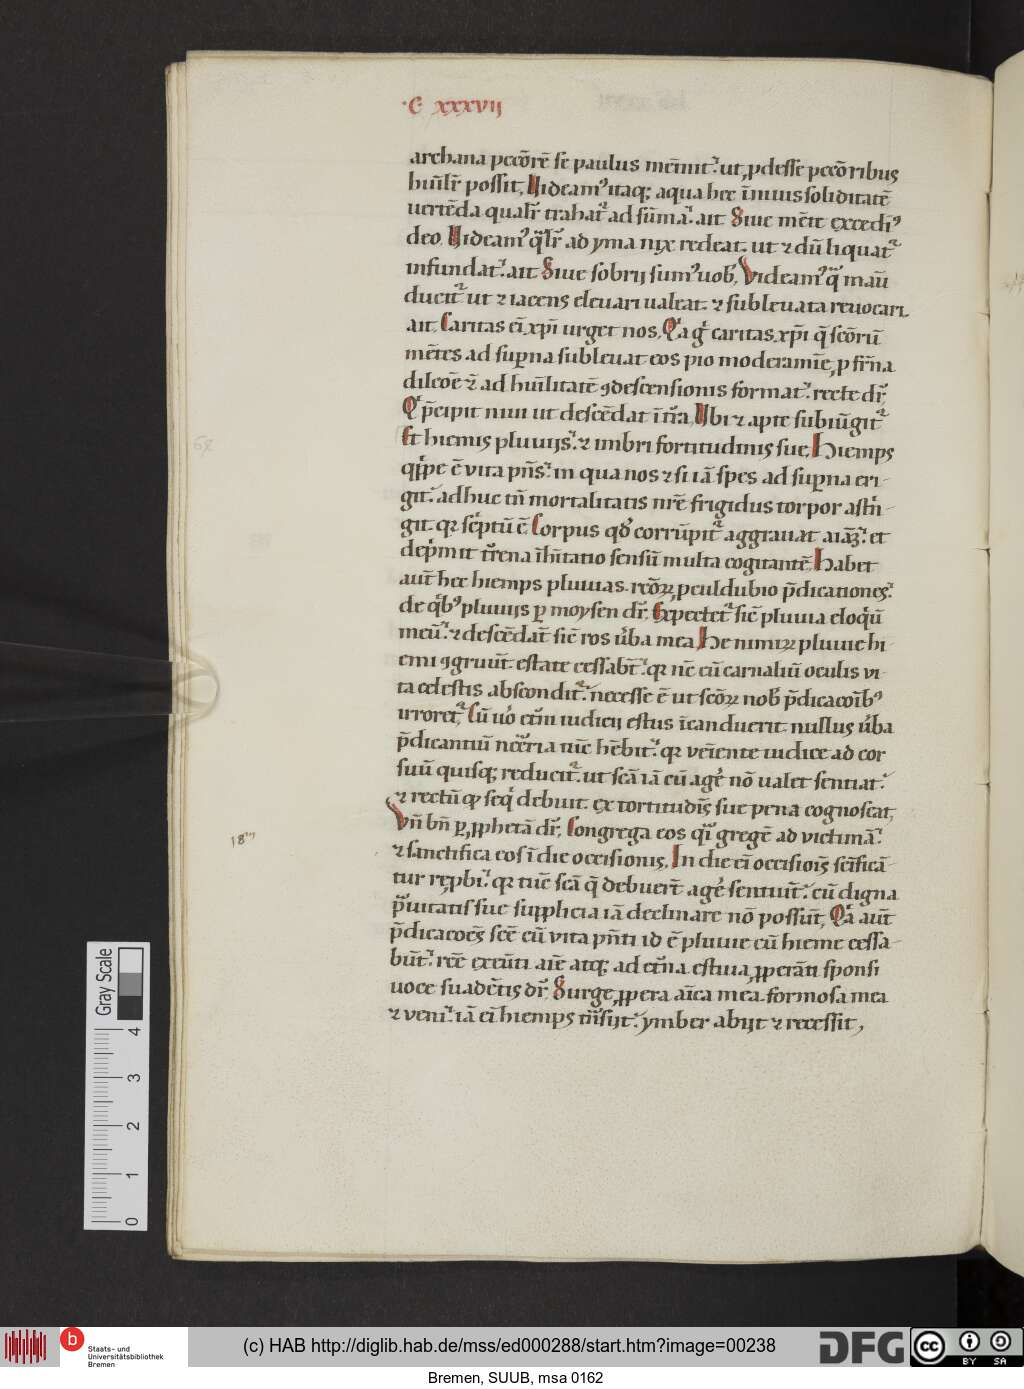 ·C xxxvij
archana pecc̄orē se paulus mēinit. ut ꝓdesse pecc̄oribus
hūilr̄ possit, Uideamꝰ itaqꝫ aqua hec ī niuis soliditatē
uertēda qualr̄ trahat᷑ ad sūma. ait Siue mēte excedimꝰ
deo. Uideamꝰ qͣlr̄ ad yma nix redeat. ut ⁊ dū liquat᷑
infundat᷑. ait Siue sobrij sumꝰ uob̄, Videamꝰ qͣ manū
ducit᷑ ut ⁊ iacens eleuari ualeat. ⁊ subleuata reuocari.
ait. Caritas eī xp̄i urget nos, Qͥa gͦ caritas xp̄i q̄ scōrū
mētes ad suꝑna subleuat eos pio moderamīe, ꝓ fr̄na
dilcōe ē ad hūilitatē ꝯdescensionis format᷑. recte dr̄,
Qͥ p̄cipit niui ut descēdat ī tr̄a, Ubi ⁊ apte subiūgit᷑
Et hiemis pluuijs. ⁊ imbri fortitudinis sue, Hiemps
qͥppe ē vita pn̄s. in qua nos ⁊ si iā spes ad suꝑna eri-
git. adhuc tn̄ mortalitatis nr̄e frigidus torpor astrī-
git. qꝛ scͥptū ē Corpus qd̓ corrūpit᷑ aggrauat aīaꝫ. et
dep̄mit tr̄rena īhītatio sensū multa cogitantē, Habet
aut̄ hec hiemps pluuias. rec̄oꝝ ꝓculdubio p̄dicationes.
de qͥbꝰ pluuijs ꝑ moysen dr̄, Expectet᷑ sic̄ pluuia eloqͥū
meū. ⁊ descēdāt sic̄ ros ūba mea, He nimiꝝ pluuie hi-
emi ꝯgruūt. estate cessabt̄. qꝛ nc̄ cū carnaliū oculis vi-
ta celestis abscondit᷑. necesse ē ut scōꝝ nob̄ p̄dicacoīb̄ꝰ
irroret᷑, Cū uͦo etn̄i iudicij estus īcanduerit. nullus ūba
p̄dicantiū nc̄cria tūc hēbit. qꝛ veīente iudice ad cor
suū quisqꝫ reducit᷑. ut scā iā cū agē nō valet sentiat.
⁊ rectū qd̓ seqͥ debuit. ex tortitudīs sue pena cognoscat,
Vn̄ bn̄ ꝑ ꝓphetā dr̄, Congrega eos qͣi gregē ad victimā.
18m
⁊ sanctifica eos ī die occisionis, In die eī occisiois̄ sc̄ificā-
tur rep̱bi. qꝛ tūc scā q̄ debuer̄t agē sentiūt. cū digna
pͣuitatis sue supplicia iā declinare nō possūt, Qͥa aut̄
p̄dicacoēs scē cū vita pn̄ti id ē pluuie cū hieme cessa-
būt. rc̄e exeūti aīe atqꝫ ad etn̄a estiua ꝓperāti sponsi
uoce suadētis dr̄, Surge ꝓpera aīca mea. formosa mea
⁊ veni. iā eī hiemps trāsijt. ymber abijt ⁊ recessit,
Gray Scale
0 1 2 3 4
b
Staats- und
Universitätsbibliothek
Bremen
(c) HAB http://diglib.hab.de/mss/ed000288/start.htm?image=00238
DFG
cc BY SA
Bremen, SUUB, msa 0162